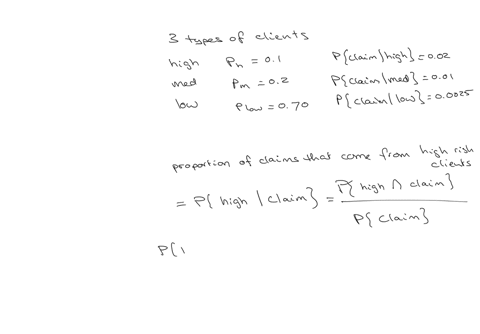 3 types of clients
high Ph = 0.1 P{claim/high} = 0.02
med Pm = 0.2 P{claim/med} = 0.01
low Plow = 0.70 P{claim/low} = 0.0025
proportion of claims that come from high risk
clients
= P{ high | claim} = P{ high ∩ claim}
P{ claim}
P{ \